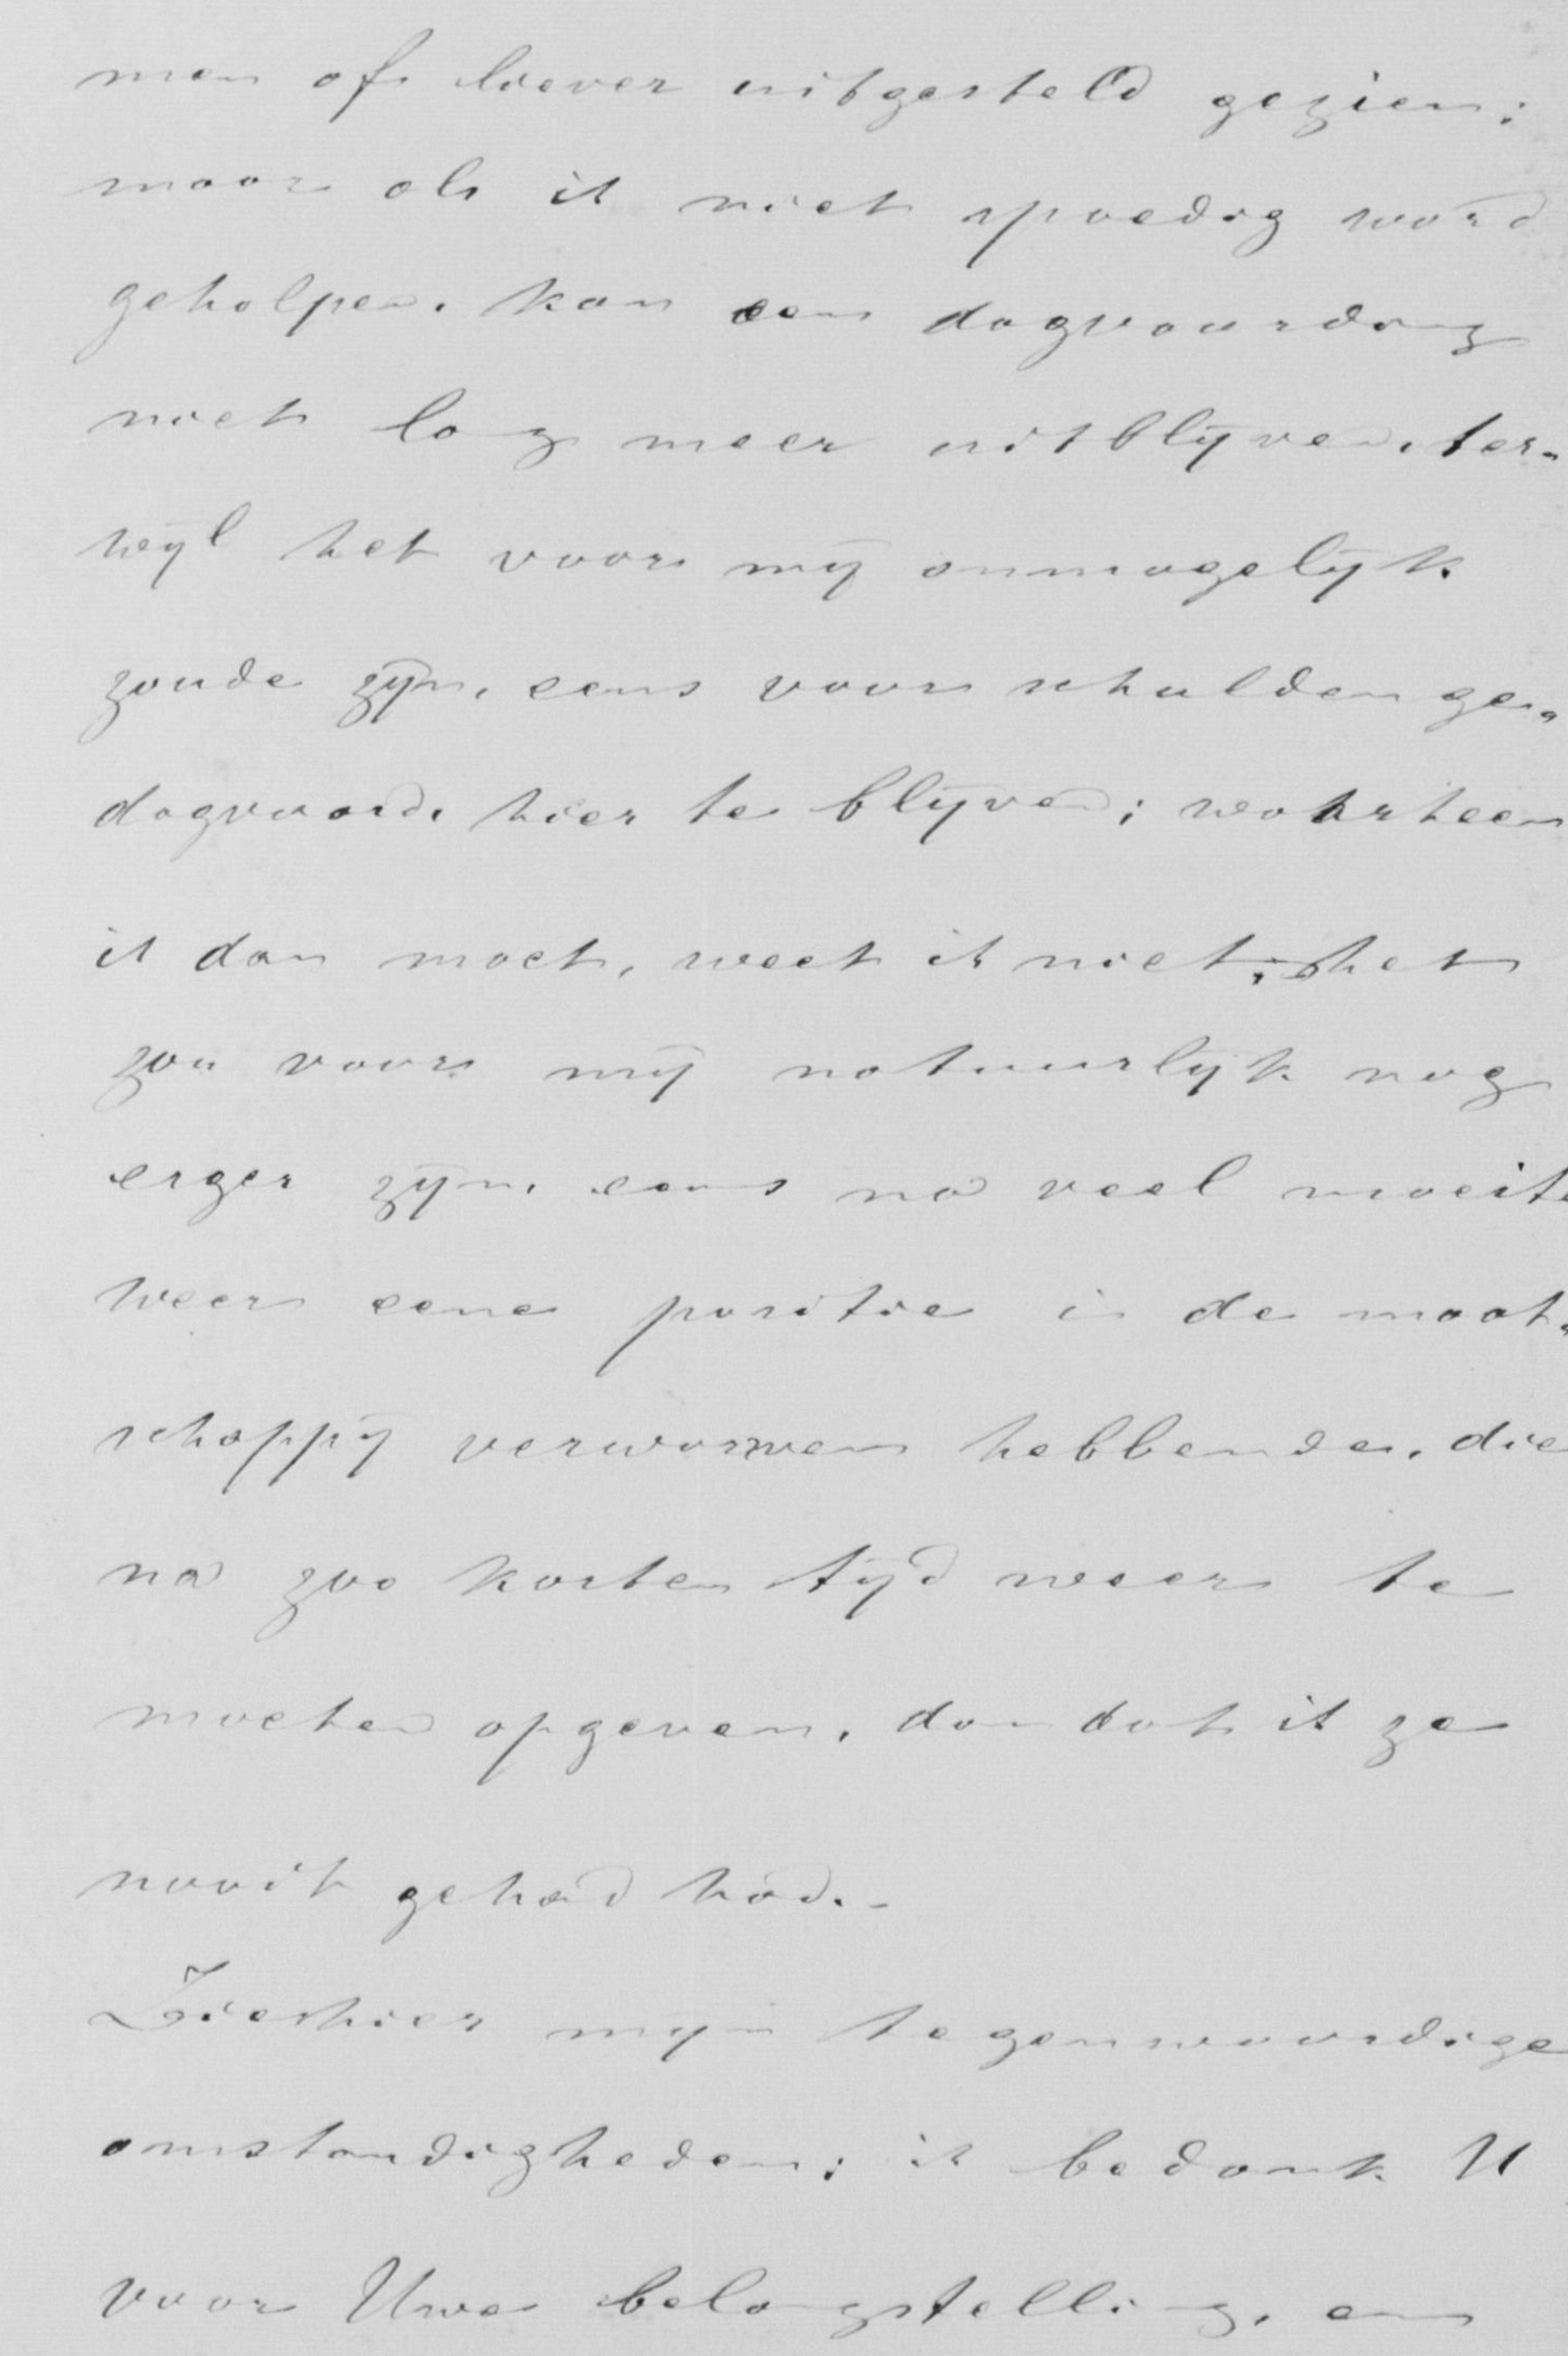 men of liever uitgesteld gezien;
maar als ik niet spoedig word
geholpen, kan een dagvaarding
niet lang meer uitblijven, ter-
wijl het voor mij onmogelijk
zoude zijn, eens voor schulden ge-
dagvaard, hier te blijven; waarheen
ik dan moet, weet ik niet; het
zou voor mij natuurlijk nog
erger zijn, eens na veel moeite
weer eene positie in de maat-
schappij verworven hebbende, die
na zoo korten tijd weer te
moeten opgeven, dan dat ik ze
nooit gehad had.-
Ziehier mijn tegenwoordige
omstandigheden; ik bedank U
voor Uwe belangstelling, en